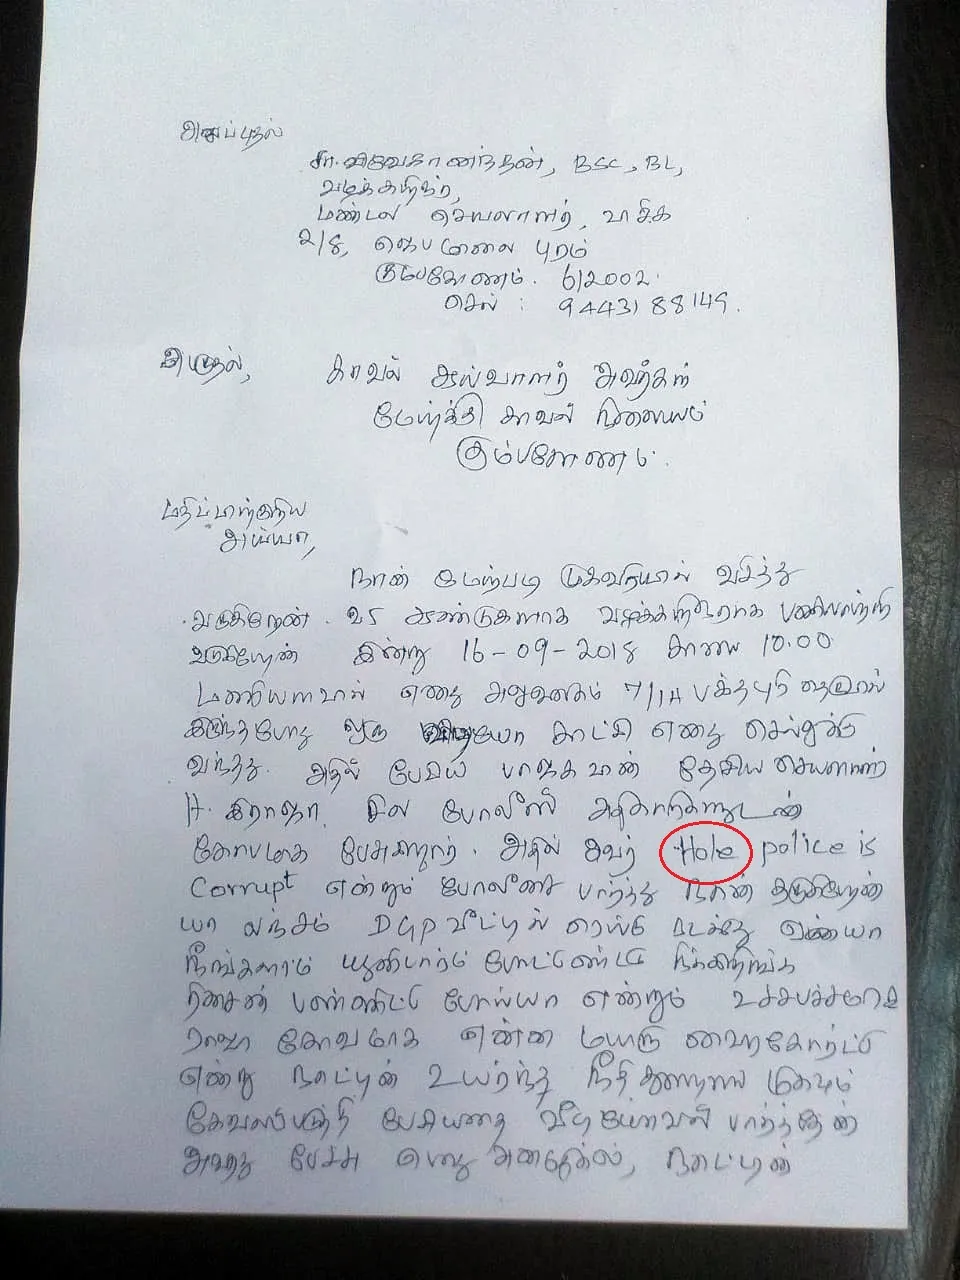 அனுப்புதல்
சா. விவேகானந்தன், BSC, BL,
வழக்கறிஞர்,
மண்டல செயலாளர், வி சி க
2/8, ஜெபமாலை புரம்
கும்பகோணம். 612002.
செல் : 9443188149.
பெறுதல்,
காவல் ஆய்வாளர் அவர்கள்
மேற்கு காவல் நிலையம்
கும்பகோணம்.
மதிப்பிற்குரிய
அய்யா,
நான் மேற்படி முகவரியில் வசித்து
வருகிறேன். 25 ஆண்டுகளாக வழக்கறிஞராக பணியாற்றி
வருகிறேன் இன்று 16-09-2018 காலை 10.00
மணியளவில் எனது அலுவலகம் 7/14 பக்தபுரி தெருவில்
இருந்தபோது ஒரு வீடியோ காட்சி எனது செல்லுக்கு
வந்தது. அதில் பேசிய பாஜகவின் தேசிய செயலாளர்
H. இராஜா சில போலீஸ் அதிகாரிகளுடன்
கோபமாக பேசுகிறார். அதில் அவர் Hole police is
Corrupt என்றும் போலீசை பார்த்து நான் தருகிறேன்
யா லஞ்சம் DGP வீட்டில் ரெய்டு நடக்குது ஏன்யா
நீங்களாம் யூனிபார்ம் போட்டுண்டு நிக்கிறீங்க
ரிசைன் பண்ணிட்டு போய்யா என்றும் உச்சபச்சமாக
கோவமாக என்ன மயிரு ஹைகோர்ட்டு
என்று நாட்டின் உயர்ந்த நீதி துறையை முகவும்
கேவலப்படுத்தி பேசியதை வீடியோவில் பார்த்தேன்
அவரது பேச்சு பொது அமைதிக்கும், நாட்டின்